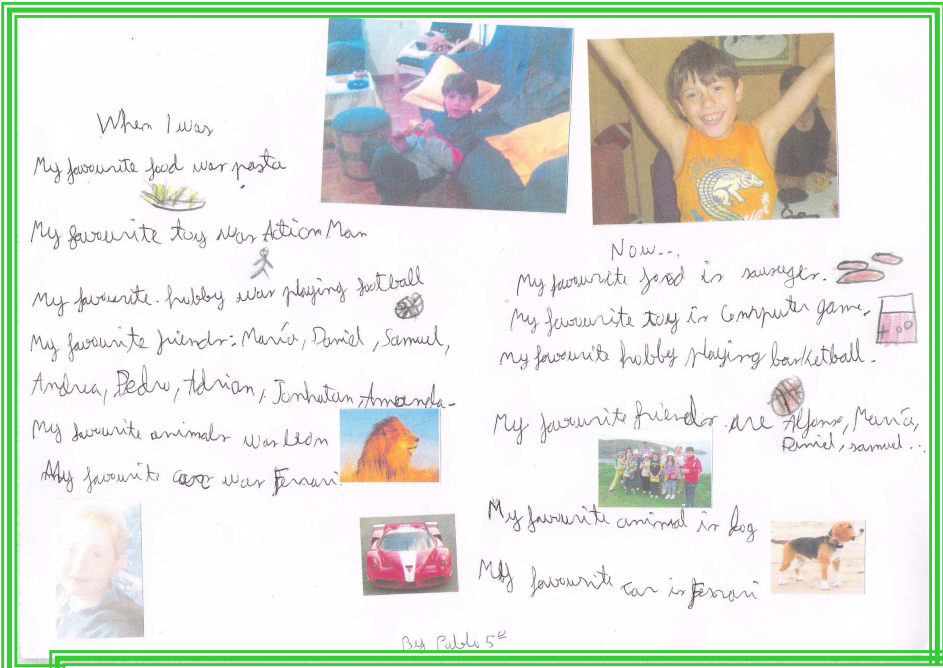 When I was
My favourite food was pasta
My favourite toy was Action Man
My favourite hobby was playing football
My favourite friends: María, Daniel, Samuel,
Andrea, Pedro, Adrian, Jonhatan, Amanda.
My favourite animals was león
My favourite car was Ferrari.
Now...
My favourite food is sausages.
My favourite toy is Computer game.
my favourite hobby playing basketball.
My favourite friends are Alfonso, María,
Daniel, samuel...
My favourite animal is dog
My favourite car is Ferrari
By Pablo 5º